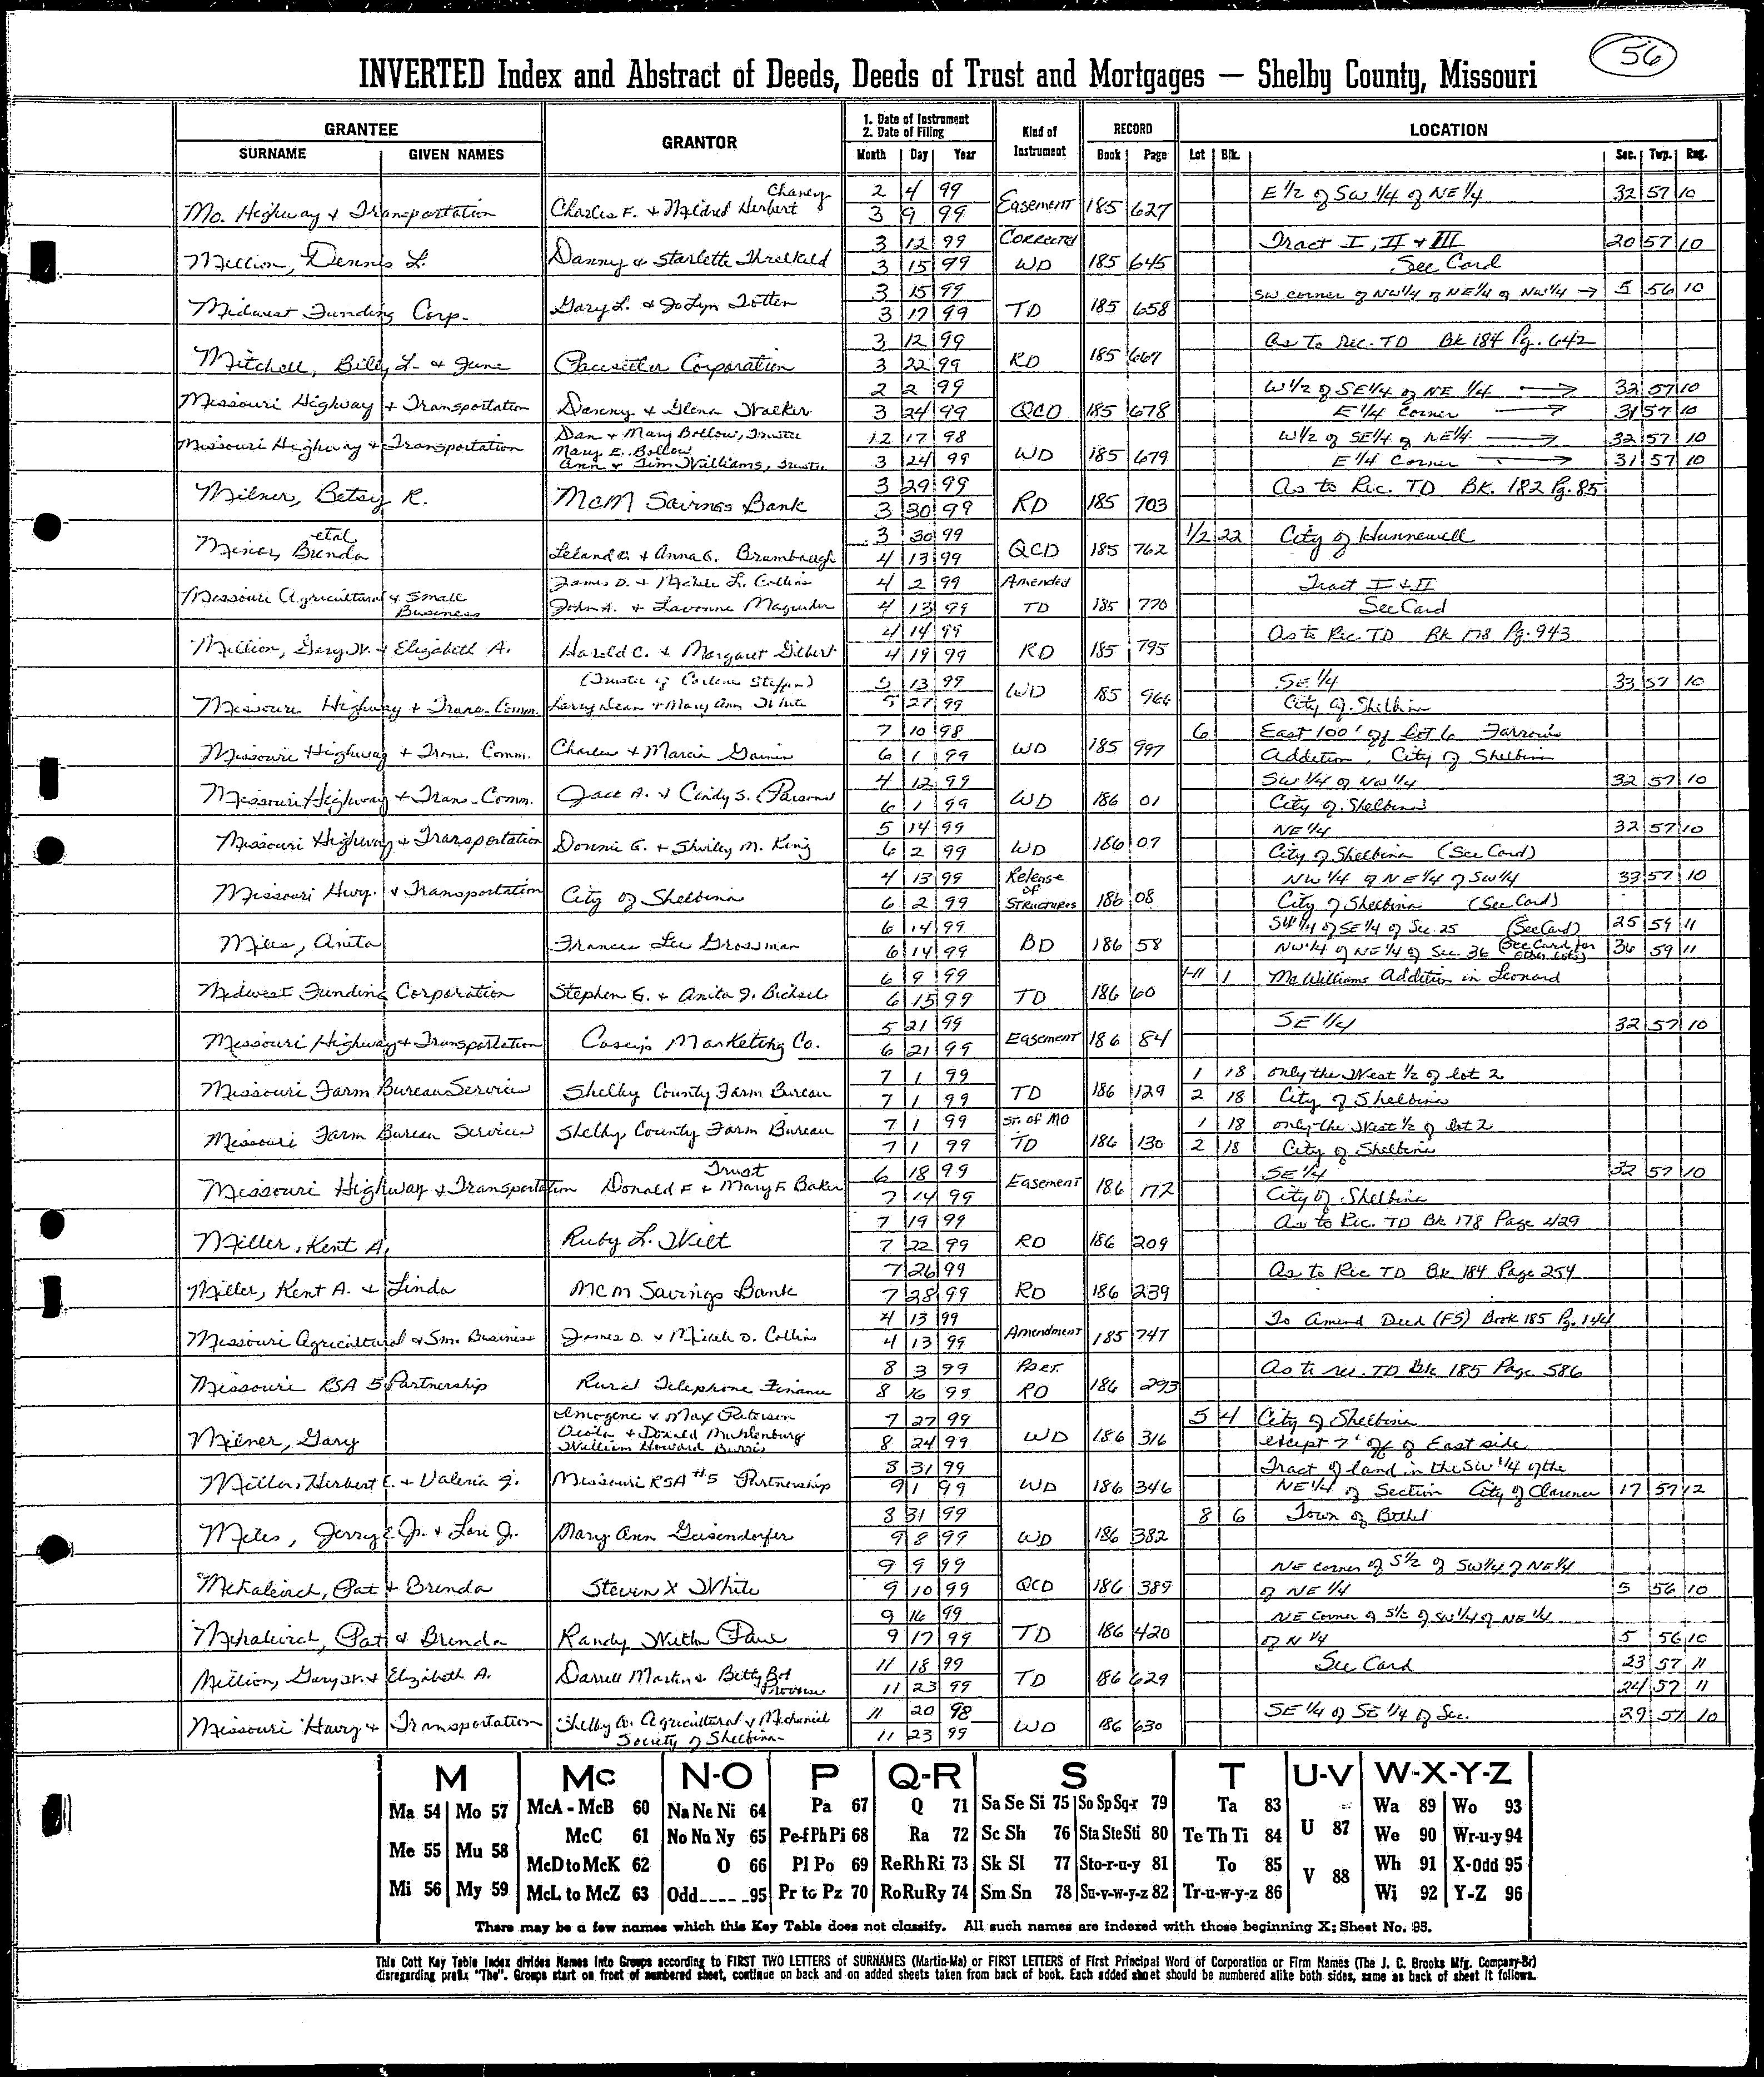 56
INVERTED Index and Abstract of Deeds, Deeds of Trust and Mortgages — Shelby County, Missouri
GRANTEE GRANTOR 1. Date of Instrument 2. Date of Filing Kind of Instrument RECORD LOCATION
SURNAME GIVEN NAMES Month Day Year Book Page Lot Blk. Sec. Twp. Rng.
Chaney 2 4 99 E 1/2 of SW 1/4 of NE 1/4 32 57 10
Mo. Highway & Transportation Charles F. & Mildred Herbert 3 9 99 Easement 185 627
3 12 99 Corrected Tract I, II & III 20 57 10
Million, Dennis L. Danny & Starlette Threlkeld 3 15 99 WD 185 645 See Card
3 15 99 SW corner of NW 1/4 of NE 1/4 of NW 1/4 → 5 56 10
Midwest Funding Corp. Gary L. & JoLyn Totten 3 17 99 TD 185 658
3 12 99 As To Rec. TD Bk 184 Pg. 642
Mitchell, Billy L. & June Pacesetter Corporation 3 22 99 RD 185 667
2 2 99 W 1/2 of SE 1/4 of NE 1/4 → 32 57 10
Missouri Highway & Transportation Danny & Glena Walker 3 24 99 QCD 185 678 E 1/4 Corner → 31 57 10
Dan & Mary Bollow, Trustee 12 17 98 W 1/2 of SE 1/4 of NE 1/4 → 32 57 10
Missouri Highway & Transportation Mary E. Bollow
Ann & Tim Williams, Trustee 3 24 99 WD 185 679 E 1/4 Corner → 31 57 10
3 29 99 As to Rec. TD Bk. 182 Pg. 85
Milner, Betsy R. MCM Savings Bank 3 30 99 RD 185 703
etal 3 30 99 1/2 22 City of Hunnewell
Brenda Leland & Anna G. Brumbaugh 4 13 99 QCD 185 762
James D. & Michele L. Collins 4 2 99 Amended Tract I & II
Missouri Agricultural & Small Business John A. & Lavonne Magruder 4 13 99 TD 185 770 See Card
4 14 99 As to Rec. TD Bk 178 Pg. 943
Million, Gary W. & Elizabeth A. Harold C. & Margaret Gilbert 4 19 99 RD 185 795
(Trustee of Corlene Steffen) 5 13 99 SE 1/4 33 57 10
Missouri Highway & Trans. Comm. Larry Dean & Mary Ann White 5 27 99 WD 185 966 City of Shelbina
7 10 98 6 East 100' of Lot 6 Farrow's
Missouri Highway & Trans. Comm. Charles & Marcia Gaines 6 1 99 WD 185 997 Addition, City of Shelbina
4 12 99 SW 1/4 of NW 1/4 32 57 10
Missouri Highway & Trans. Comm. Jack A. & Cindy S. Parsons 6 1 99 WD 186 01 City of Shelbina
5 14 99 NE 1/4 32 57 10
Missouri Highway & Transportation Donnie G. & Shirley M. King 6 2 99 WD 186 07 City of Shelbina (See Card)
4 13 99 Release of Structures NW 1/4 of NE 1/4 of SW 1/4 33 57 10
Missouri Hwy. & Transportation City of Shelbina 6 2 99 186 08 City of Shelbina (See Card)
6 14 99 SW 1/4 of SE 1/4 of Sec. 25 (See Card) 25 59 11
Miles, Anita Frances Lee Grossman 6 14 99 BD 186 58 NW 1/4 of NE 1/4 of Sec. 36 (See Card for other lots) 36 59 11
6 9 99 1-11 1 McWilliams Addition in Leonard
Midwest Funding Corporation Stephen G. & Anita J. Bichsel 6 15 99 TD 186 60
5 21 99 SE 1/4 32 57 10
Missouri Highway & Transportation Casey's Marketing Co. 6 21 99 Easement 186 84
7 1 99 1 18 only the West 1/2 of lot 2
Missouri Farm Bureau Services Shelby County Farm Bureau 7 1 99 TD 186 129 2 18 City of Shelbina
7 1 99 St. of MO 1 18 only the West 1/2 of lot 2
Missouri Farm Bureau Services Shelby County Farm Bureau 7 1 99 TD 186 130 2 18 City of Shelbina
Trust 6 18 99 SE 1/4 32 57 10
Missouri Highway & Transportation Donald F. & Mary F. Baker 7 14 99 Easement 186 172 City of Shelbina
7 19 99 As to Rec. TD Bk 178 Page 429
Miller, Kent A. Ruby L. Wilt 7 22 99 RD 186 209
7 26 99 As to Rec TD Bk 184 Page 254
Miller, Kent A. & Linda MCM Savings Bank 7 28 99 RD 186 239
4 13 99 To Amend Deed (FS) Book 185 Pg. 144
Missouri Agricultural & Sm. Business James D. & Michele D. Collins 4 13 99 Amendment 185 747
8 3 99 Part. As to rec. TD Bk 185 Page 586
Missouri RSA 5 Partnership Rural Telephone Finance 8 16 99 RD 186 293
Imogene & Max Peterson 7 27 99 5 4 City of Shelbina
Milner, Gary & Donald Muhlenburg
William Howard Burris 8 24 99 WD 186 316 except 7' off of East side
8 31 99 Tract of land in the SW 1/4 of the
Miller, Herbert E. & Valeria J. Missouri RSA #5 Partnership 9 1 99 WD 186 346 NE 1/4 of Section City of Clarence 17 57 12
8 31 99 8 6 Town of Bethel
Miles, Jerry E. Jr. & Lori J. Mary Ann Geisendorfer 9 8 99 WD 186 382
9 9 99 NE corner of S 1/2 of SW 1/4 of NE 1/4
Mihalevich, Pat & Brenda Steven X White 9 10 99 QCD 186 389 of NE 1/4 5 56 10
9 16 99 NE Corner of S 1/2 of SW 1/4 of NE 1/4
Mihalevich, Pat & Brenda Randy Paul 9 17 99 TD 186 420 of N 1/4 5 56 10
11 18 99 See Card 23 57 11
Million, Gary W. & Elizabeth A. Darrell Martin & Betty Provow 11 23 99 TD 186 629 24 57 11
11 20 98 SE 1/4 of SE 1/4 of Sec. 29 57 10
Missouri Hwy & Transportation Shelby Co. Agricultural & Mechanical Society of Shelbina 11 23 99 WD 186 630
M Mc N-O P Q-R S T U-V W-X-Y-Z
Ma 54 Mo 57 McA - McB 60 Na Ne Ni 64 Pa 67 Q 71 Sa Se Si 75 So Sp Sq-r 79 Ta 83 Wa 89 Wo 93
Me 55 Mu 58 McC 61 No Nu Ny 65 Pe-f Ph Pi 68 Ra 72 Sc Sh 76 Sta Ste Sti 80 Te Th Ti 84 U 87 We 90 Wr-u-y 94
McD to McK 62 O 66 Pl Po 69 Re Rh Ri 73 Sk Sl 77 Sto-r-u-y 81 To 85 V 88 Wh 91 X-Odd 95
Mi 56 My 59 McL to McZ 63 Odd 95 Pr to Pz 70 Ro Ru Ry 74 Sm Sn 78 Su-v-w-y-z 82 Tr-u-w-y-z 86 Wi 92 Y-Z 96
There may be a few names which this Key Table does not classify. All such names are indexed with those beginning X; Sheet No. 95.
This Cott Key Table Index divides Names Into Groups according to FIRST TWO LETTERS of SURNAMES (Martin-Ma) or FIRST LETTERS of First Principal Word of Corporation or Firm Names (The J. C. Brooks Mfg. Company-Br)
disregarding prefix "The". Groups start on front of numbered sheet, continue on back and on added sheets taken from back of book. Each added sheet should be numbered alike both sides, same as back of sheet it follows.